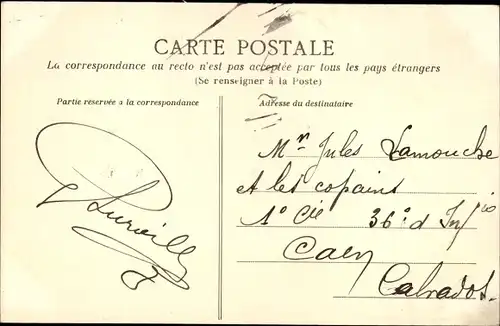 CARTE POSTALE
La correspondance au recto n'est pas acceptée par tous les pays étrangers
(Se renseigner à la Poste)
Partie réservée à la correspondance
Adresse du destinataire
Mr Jules Lamouche
et les copains
1º Cie 36º d'Infrie
Caen
Calvados.